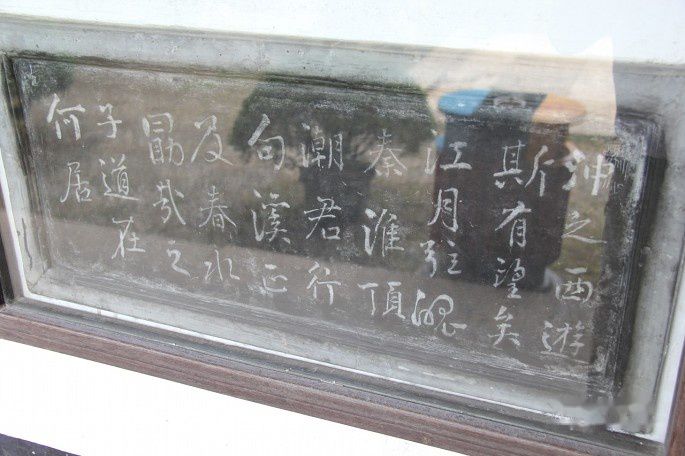 沖之西遊
斯有望矣
江月弦魄
秦淮頂
潮君行
句溪正
及春水
勖哉之
子道在
何居